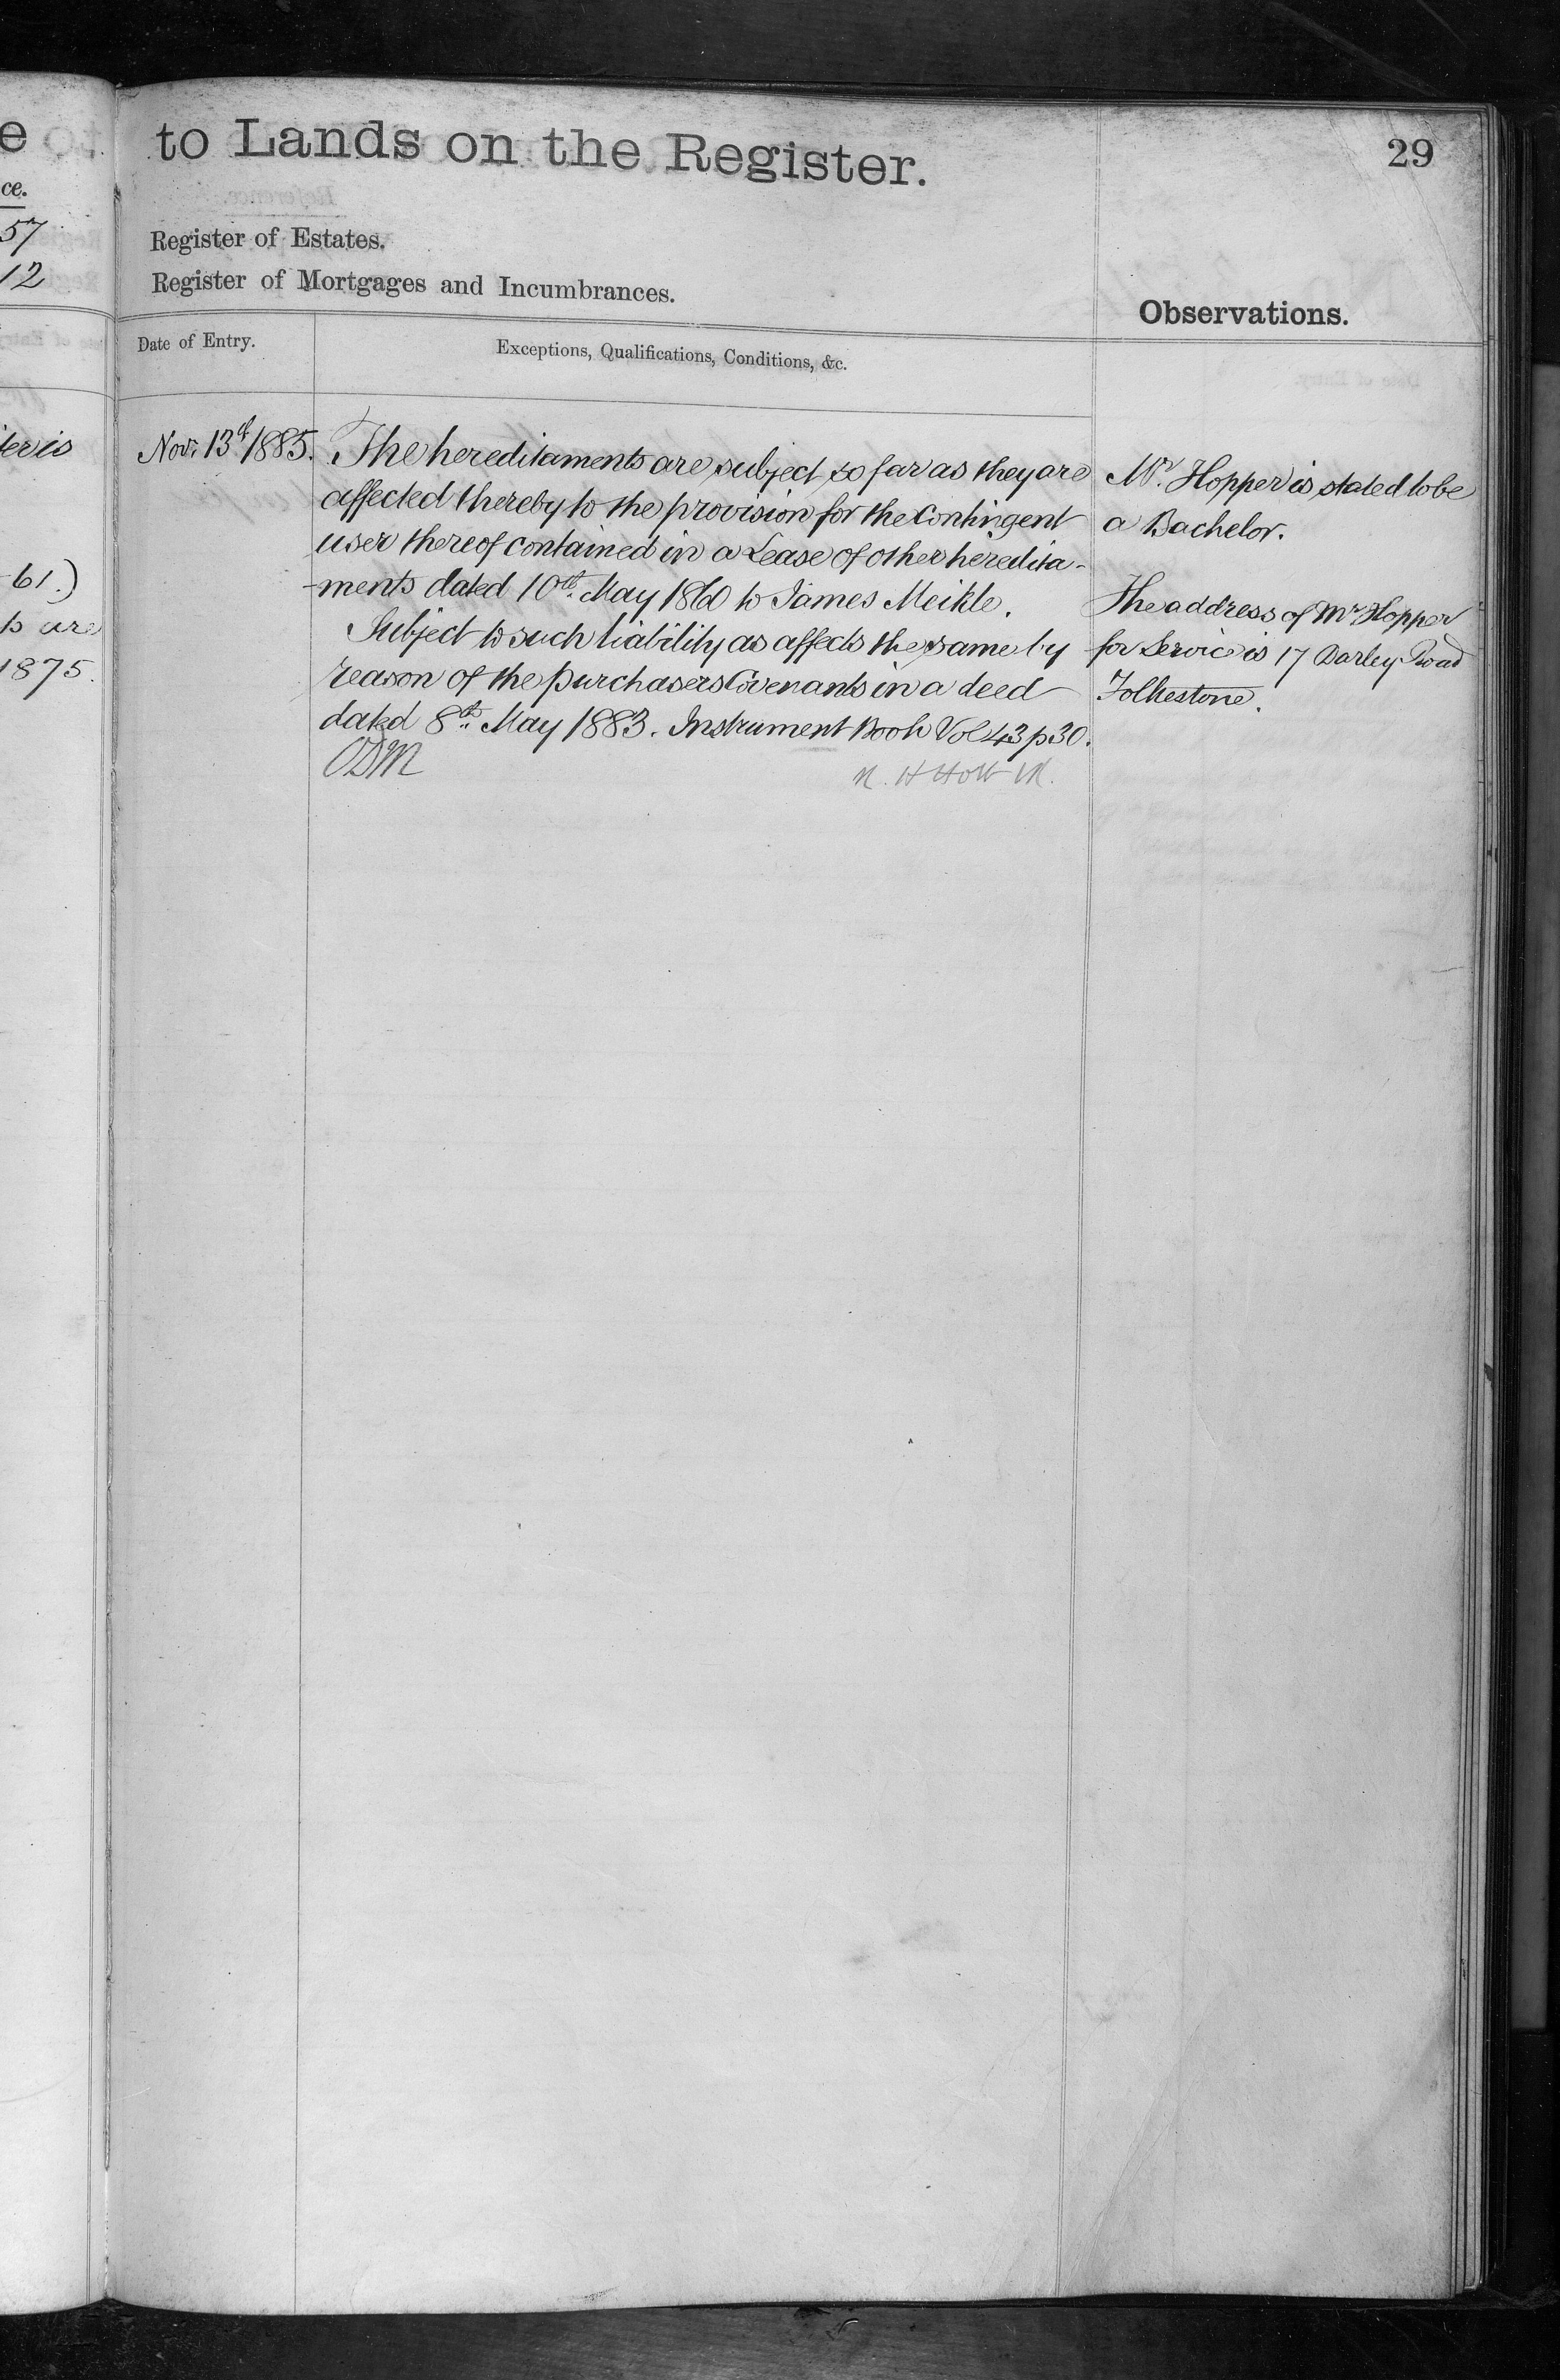 to Lands on the Register.
29
Register of Estates.
Register of Mortgages and Incumbrances.
Observations.
Date of Entry.
Exceptions, Qualifications, Conditions, &c.
Nov. 13th 1885.
The hereditaments are subject so far as they are
affected thereby to the provision for the Contingent
user thereof contained in a Lease of other heredita-
-ments dated 10th May 1860 to James Meikle.
Subject to such liability as affects the same by
reason of the purchasers Covenants in a deed
dated 8th May 1883. Instrument Book Vol 43 p 30.
ODM
Mr. Hopper is stated to be
a Bachelor.
The address of Mr Hopper
for Service is 17 Darley Road
Folkestone.
e
ce.
57
12
61.)
are
1875.